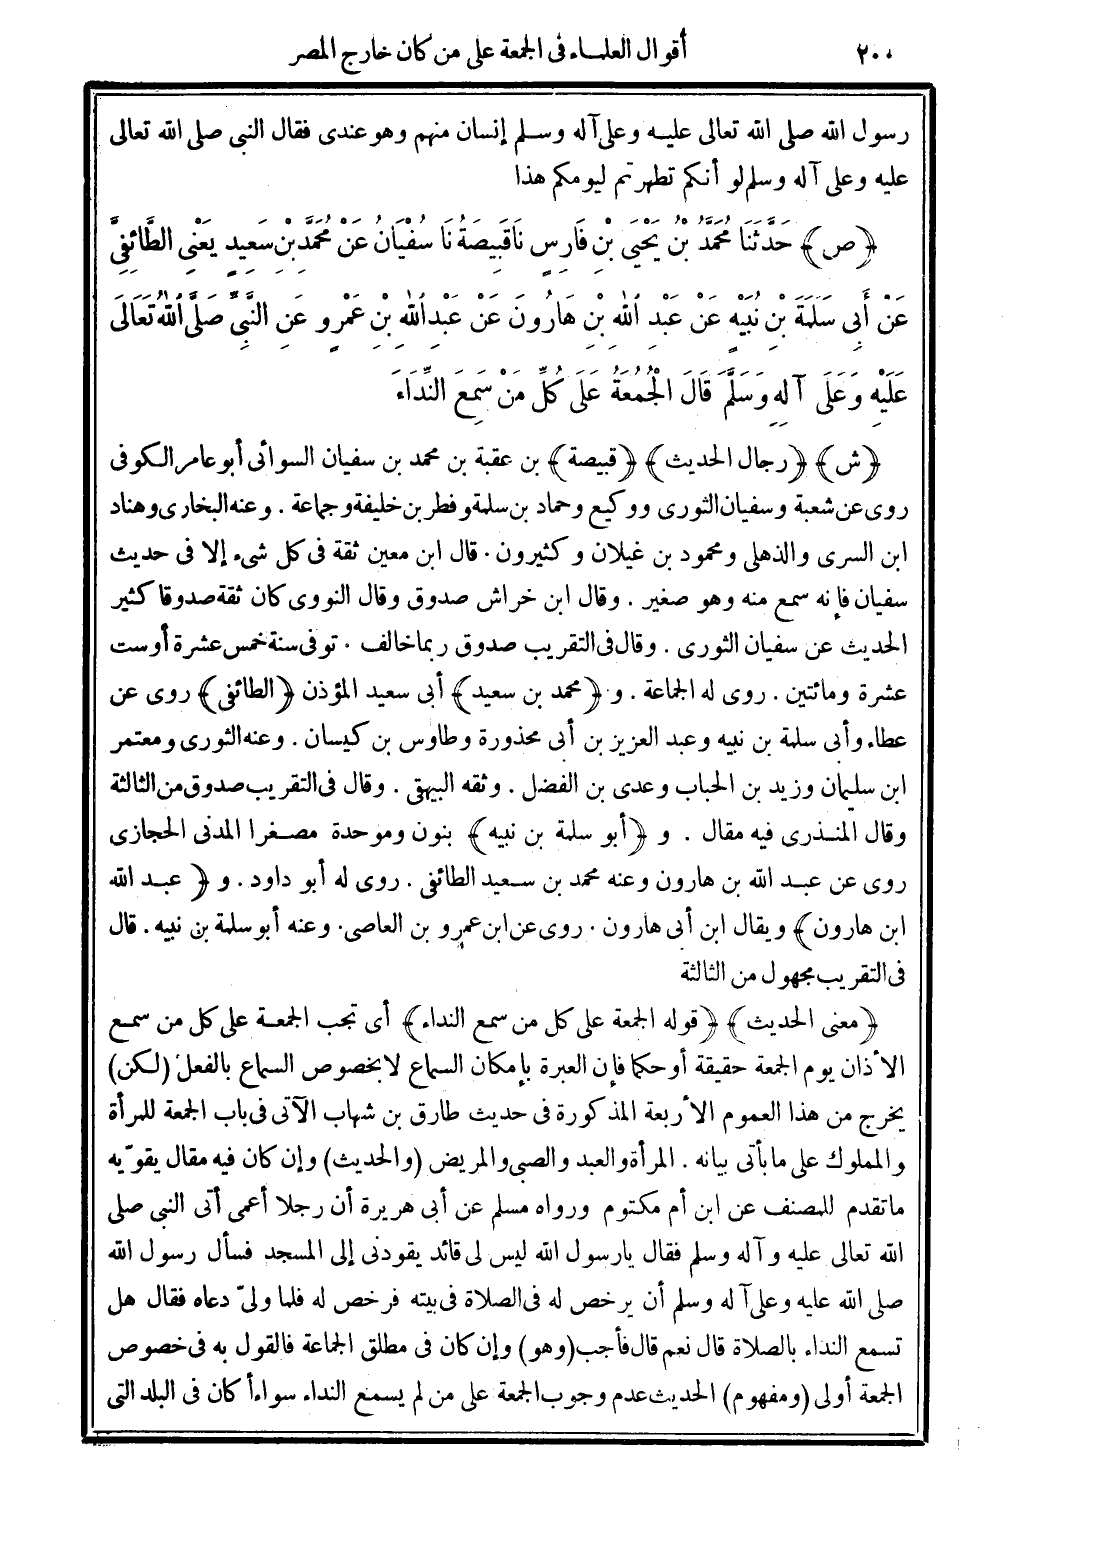 ٢٠٠ أقوال العلماء فى الجمعة على من كان خارج المصر
رسول الله صلى الله تعالى عليه وعلى آله وسلم إنسان منهم وهو عندى فقال النبى صلى الله تعالى
عليه وعلى آله وسلم لو أنكم تطهرتم ليومكم هذا
﴿ص﴾ حَدَّثَنَا مُحَمَّدُ بْنُ يَحْيَى بْنِ فَارِسٍ نَا قَبِيصَةُ نَا سُفْيَانُ عَنْ مُحَمَّدِ بْنِ سَعِيدٍ يَعْنِى الطَّائِفِىَّ
عَنْ أَبِى سَلَمَةَ بْنِ نُبَيْهٍ عَنْ عَبْدِ اللهِ بْنِ هَارُونَ عَنْ عَبْدِ اللهِ بْنِ عَمْرٍو عَنِ النَّبِىِّ صَلَّى اللهُ تَعَالَى
عَلَيْهِ وَعَلَى آلِهِ وَسَلَّمَ قَالَ الْجُمُعَةُ عَلَى كُلِّ مَنْ سَمِعَ النِّدَاءَ
﴿ش﴾ ﴿رجال الحديث﴾ ﴿قبيصة﴾ بن عقبة بن محمد بن سفيان السوائى أبو عامر الكوفى
روى عن شعبة وسفيان الثورى ووكيع وحماد بن سلمة وفطر بن خليفة وجماعة . وعنه البخارى وهناد
ابن السرى والذهلى ومحمود بن غيلان وكثيرون . قال ابن معين ثقة فى كل شىء إلا فى حديث
سفيان فإنه سمع منه وهو صغير . وقال ابن خراش صدوق وقال النووى كان ثقة صدوقا كثير
الحديث عن سفيان الثورى . وقال فى التقريب صدوق ربما خالف . توفى سنة خمس عشرة أوست
عشرة ومائتين . روى له الجماعة . و ﴿محمد بن سعيد﴾ أبى سعيد المؤذن ﴿الطائفى﴾ روى عن
عطاء وأبى سلمة بن نبيه وعبد العزيز بن أبى محذورة وطاوس بن كيسان . وعنه الثورى ومعتمر
ابن سليمان وزيد بن الحباب وعدى بن الفضل . وثقه البيهقى . وقال فى التقريب صدوق من الثالثة
وقال المنذرى فيه مقال . و ﴿أبو سلمة بن نبيه﴾ بنون وموحدة مصغرا المدنى الحجازى
روى عن عبد الله بن هارون وعنه محمد بن سعيد الطائفى . روى له أبو داود . و ﴿عبد الله
ابن هارون﴾ ويقال ابن أبى هارون . روى عن ابن عمرو بن العاصى . وعنه أبو سلمة بن نبيه . قال
فى التقريب مجهول من الثالثة
﴿معنى الحديث﴾ ﴿قوله الجمعة على كل من سمع النداء﴾ أى تجب الجمعة على كل من سمع
الأذان يوم الجمعة حقيقة أو حكما فإن العبرة بإمكان السماع لا بخصوص السماع بالفعل (لكن)
يخرج من هذا العموم الأربعة المذكورة فى حديث طارق بن شهاب الآتى فى باب الجمعة للمرأة
والمملوك على ما يأتى بيانه . المرأة والعبد والصبى والمريض (والحديث) وإن كان فيه مقال يقوّيه
ما تقدم للمصنف عن ابن أم مكتوم ورواه مسلم عن أبى هريرة أن رجلا أعمى أتى النبى صلى
الله تعالى عليه وآله وسلم فقال يارسول الله ليس لى قائد يقودنى إلى المسجد فسأل رسول الله
صلى الله عليه وعلى آله وسلم أن يرخص له فى الصلاة فى بيته فرخص له فلما ولىّ دعاه فقال هل
تسمع النداء بالصلاة قال نعم قال فأجب (وهو) وإن كان فى مطلق الجماعة فالقول به فى خصوص
الجمعة أولى (ومفهوم) الحديث عدم وجوب الجمعة على من لم يسمع النداء سواءأ كان فى البلد التى